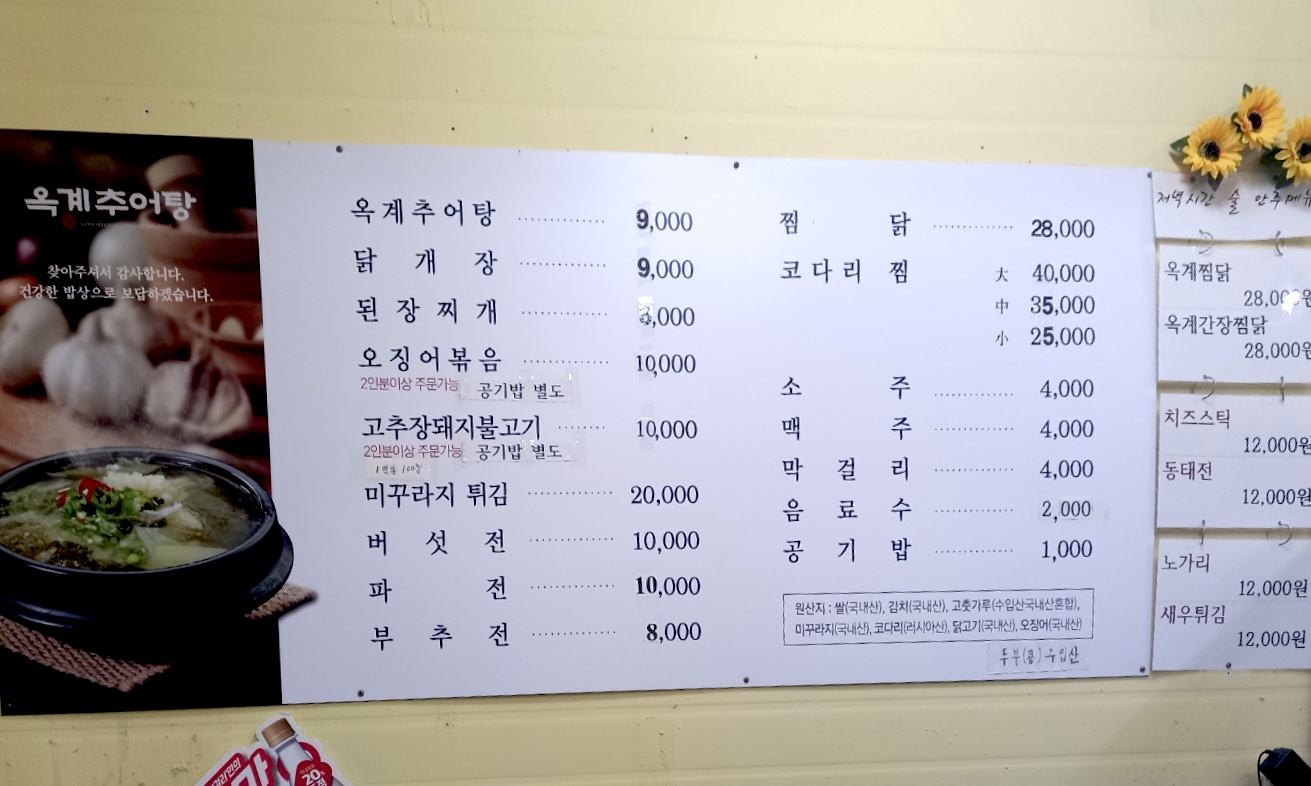 옥계추어탕
찾아주셔서 감사합니다.
건강한 밥상으로 보답하겠습니다.
옥계추어탕 9,000
닭개장 9,000
된장찌개 ,000
오징어볶음 10,000
2인분이상 주문가능 공기밥 별도
고추장돼지불고기 10,000
2인분이상 주문가능 공기밥 별도
미꾸라지 튀김 20,000
버섯전 10,000
파전 10,000
부추전 8,000
찜닭 28,000
코다리찜 大 40,000
中 35,000
小 25,000
소주 4,000
맥주 4,000
막걸리 4,000
음료수 2,000
공기밥 1,000
원산지 : 쌀(국내산), 김치(국내산), 고춧가루(수입산국내산혼합),
미꾸라지(국내산), 코다리(러시아산), 닭고기(국내산), 오징어(국내산)
두부(콩) 수입산
저녁시간 술 안주메뉴
옥계찜닭
28,000원
옥계간장찜닭
28,000원
치즈스틱
12,000원
동태전
12,000원
노가리
12,000원
새우튀김
12,000원
막
20